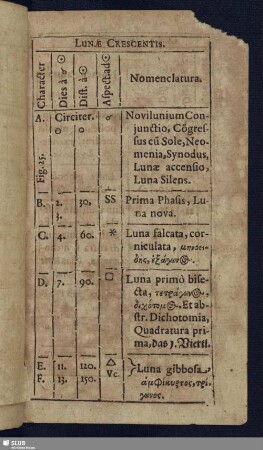 LUNÆ CRESCENTIS.
Character
Dies à ☉
Dist. à ☉
Aspect⁹ ad ☉
Nomenclatura.
A. Circiter. ☌ Novilunium Con-
o o junctio, Cõgres-
sus cũ Sole, Neo-
menia, Synodus,
Fig. 25. Lunæ accensio,
Luna Silens.
B. 2. 30. SS Prima Phasis, Lu-
3. na nova.
C. 4. 60. ⚹ Luna falcata, cor-
niculata, μηνοει-
δὴς, ἑξάγων⊙.
D. 7. 90. □ Luna primò bise-
cta, τετράγων⊙,
διχότομ⊙. Et ab-
str. Dichotomia,
Quadratura pri-
ma, das 1. Viertl.
E. 11. 120. △ } Luna gibbosa
F. 13. 150. Vc. ἀμφίκυρτος, τρί-
γωνος.
SLUB